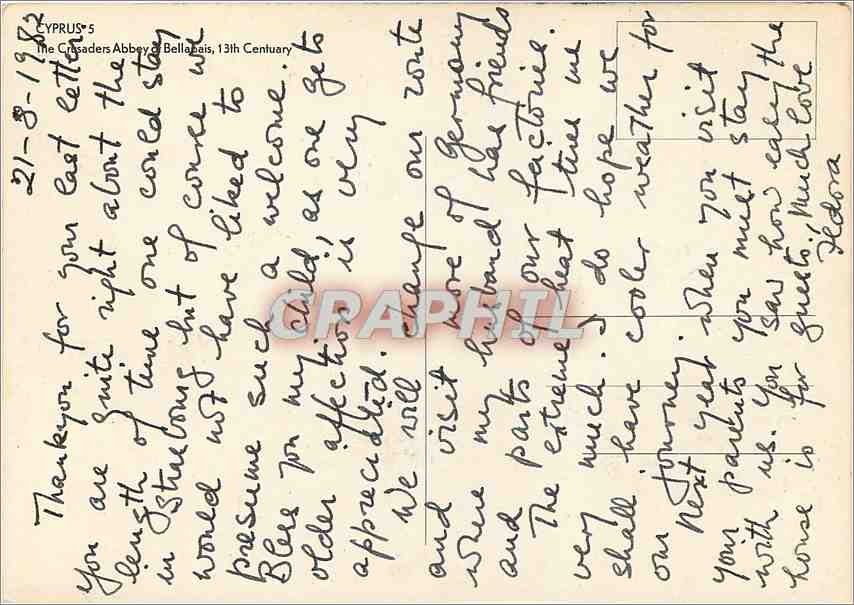 CYPRUS 5
The Crusaders Abbey of Bellapais, 13th Centuary
21-8-1982
Thankyou for your last letter.
You are quite right about the
length of time one could stay
in Strasbourg but of course we
would not have liked to
presume such a welcome.
Bless you my child, as one gets
older affection is very
appreciated.
We will change our route
and visit more of Germany
where my husband has friends
and parts of our factories.
The extreme heat tires me
very much. I do hope we
shall have cooler weather for
our journey.
Next year when you visit
your parents you must stay
with us. You saw how easy the
house is for guests. Much love
Fedora
GRAPHIL